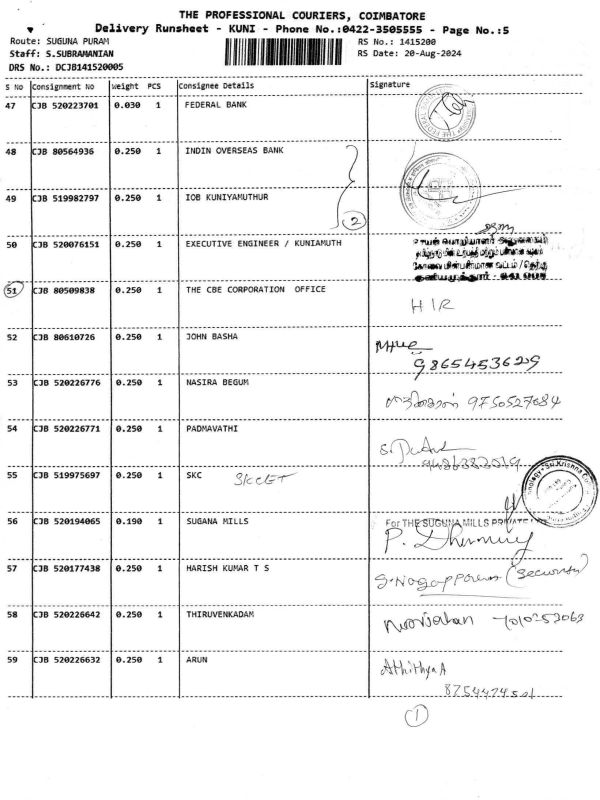 THE PROFESSIONAL COURIERS, COIMBATORE
Delivery Runsheet - KUNI - Phone No.:0422-3505555 - Page No.:5
Route: SUGUNA PURAM RS No.: 1415200
Staff: S.SUBRAMANIAN RS Date: 20-Aug-2024
DRS No.: DCJB141520005
S No Consignment No Weight PCS Consignee Details Signature
47 CJB 520223701 0.030 1 FEDERAL BANK
48 CJB 80564936 0.250 1 INDIN OVERSEAS BANK
49 CJB 519982797 0.250 1 IOB KUNIYAMUTHUR
2
50 CJB 520076151 0.250 1 EXECUTIVE ENGINEER / KUNIAMUTH
51 CJB 80509838 0.250 1 THE CBE CORPORATION OFFICE
H I R
52 CJB 80610726 0.250 1 JOHN BASHA
9865453629
53 CJB 520226776 0.250 1 NASIRA BEGUM
9750527684
54 CJB 520226771 0.250 1 PADMAVATHI
55 CJB 519975697 0.250 1 SKC SKCET
56 CJB 520194065 0.190 1 SUGANA MILLS For THE SUGUNA MILLS PRIVATE
57 CJB 520177438 0.250 1 HARISH KUMAR T S
(Security)
58 CJB 520226642 0.250 1 THIRUVENKADAM
59 CJB 520226632 0.250 1 ARUN
Athithya A
1